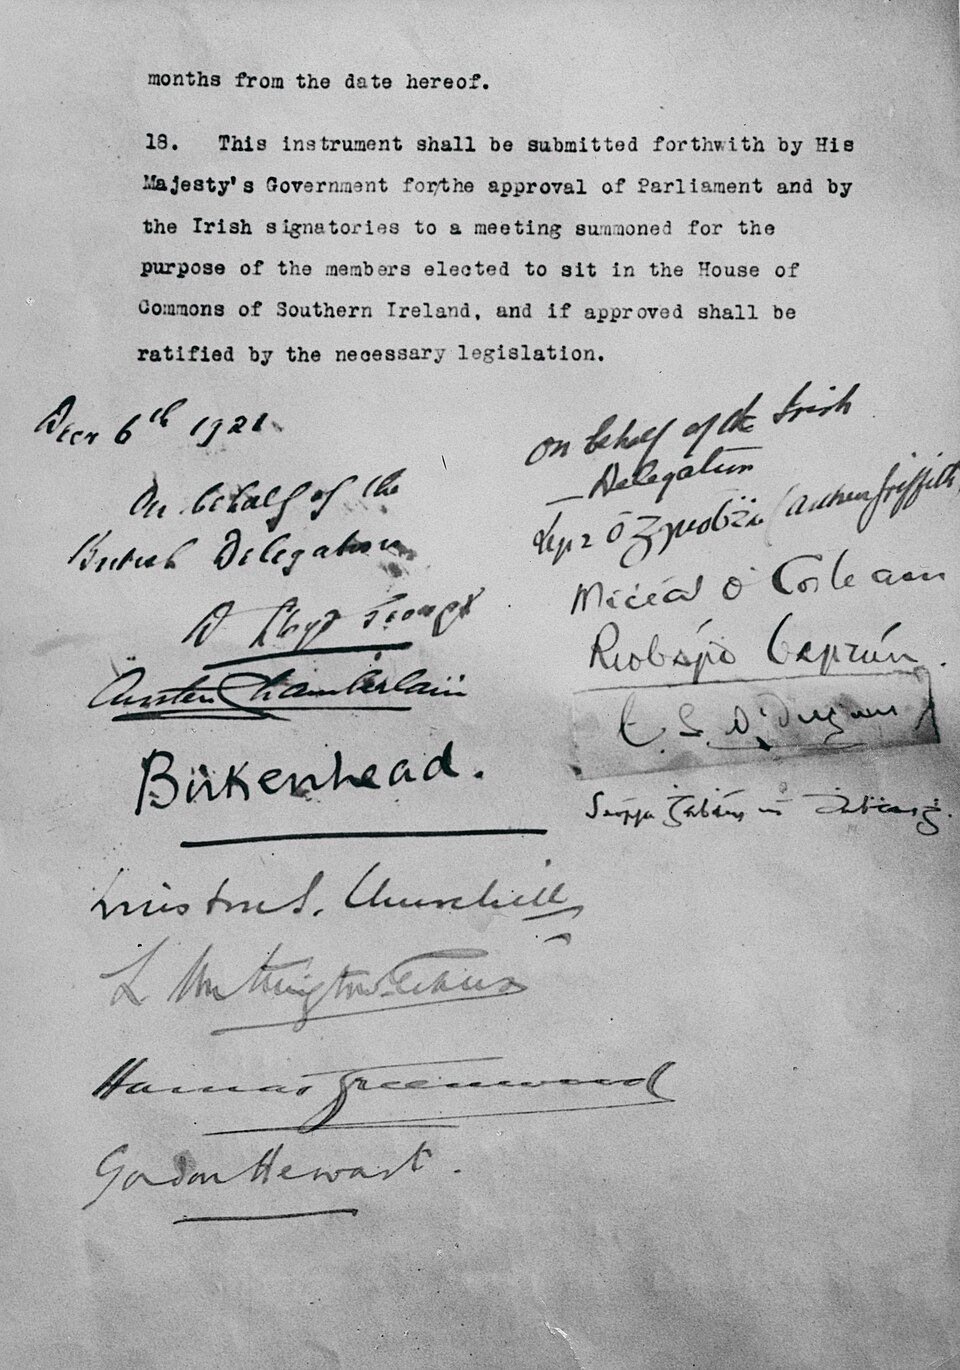 months from the date hereof.
18. This instrument shall be submitted forthwith by His
Majesty's Government for/the approval of Parliament and by
the Irish signatories to a meeting summoned for the
purpose of the members elected to sit in the House of
Commons of Southern Ireland, and if approved shall be
ratified by the necessary legislation.
Decr 6th 1921
On behalf of the
British Delegation
D Lloyd George
Austen Chamberlain
Birkenhead.
Winston S. Churchill
L Worthington-Evans
Hamar Greenwood
Gordon Hewart.
On behalf of the Irish
Delegation
Art Ó Gríobhtha (Arthur Griffith)
Mícéal Ó Coileain
Riobárd Bartún
E. S. Ó Dugain
Seórsa Ghabháin uí Dhubhthaigh